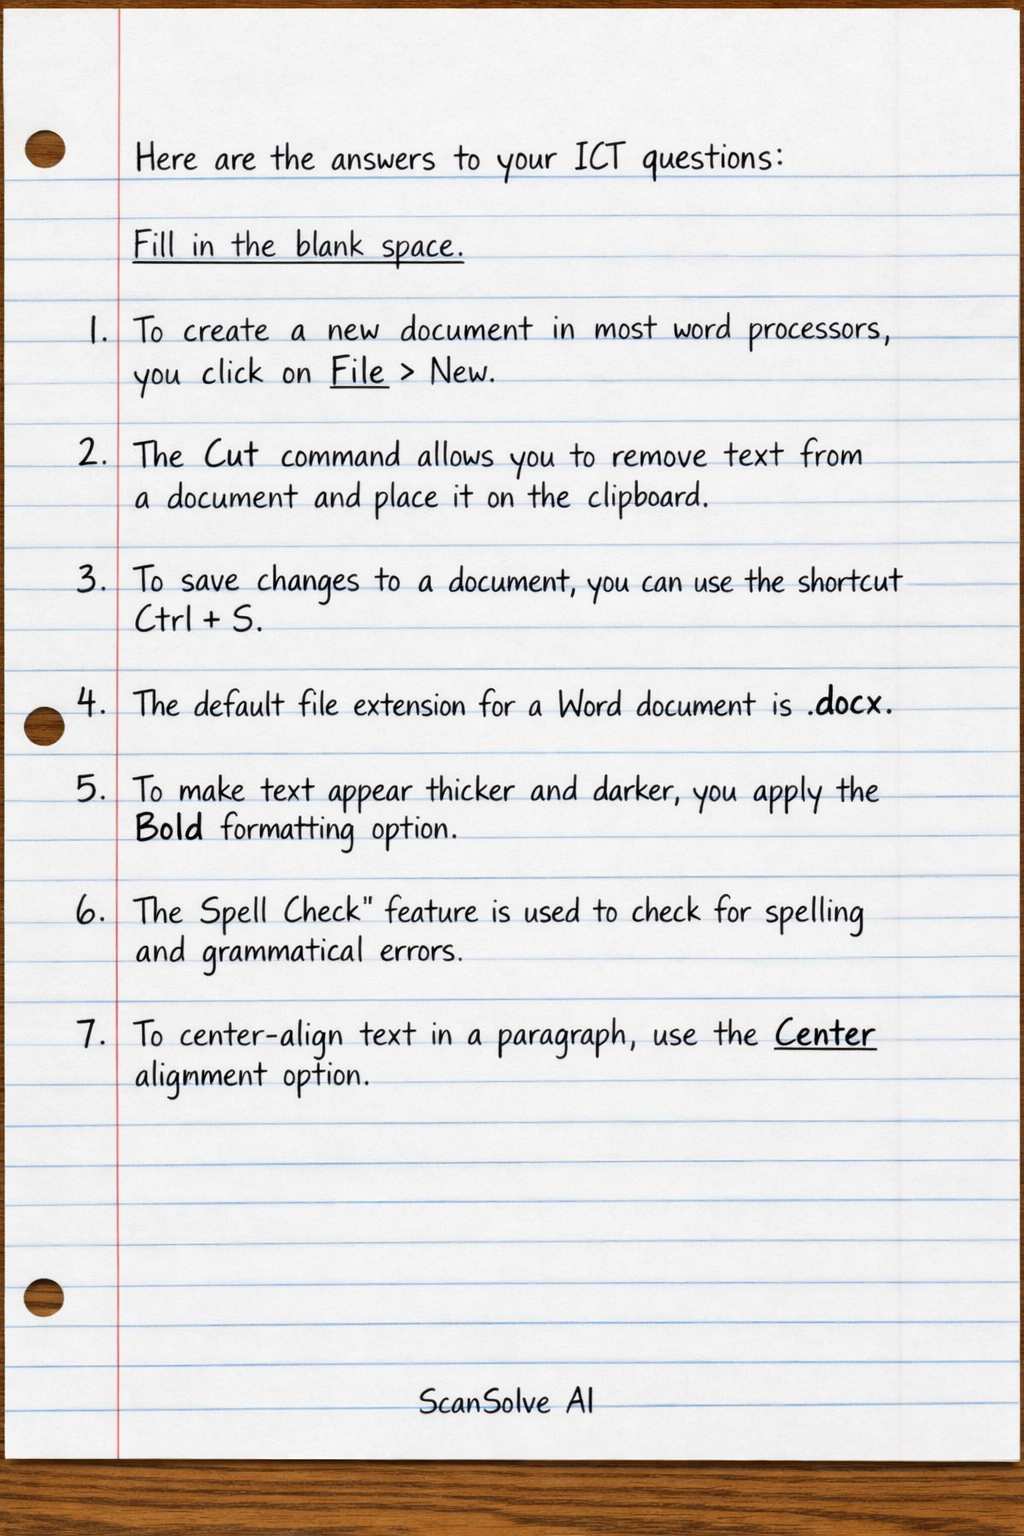 Here are the answers to your ICT questions:
Fill in the blank space.
1. To create a new document in most word processors,
you click on File > New.
2. The Cut command allows you to remove text from
a document and place it on the clipboard.
3. To save changes to a document, you can use the shortcut
Ctrl + S.
4. The default file extension for a Word document is .docx.
5. To make text appear thicker and darker, you apply the
Bold formatting option.
6. The Spell Check" feature is used to check for spelling
and grammatical errors.
7. To center-align text in a paragraph, use the Center
alignment option.
ScanSolve AI